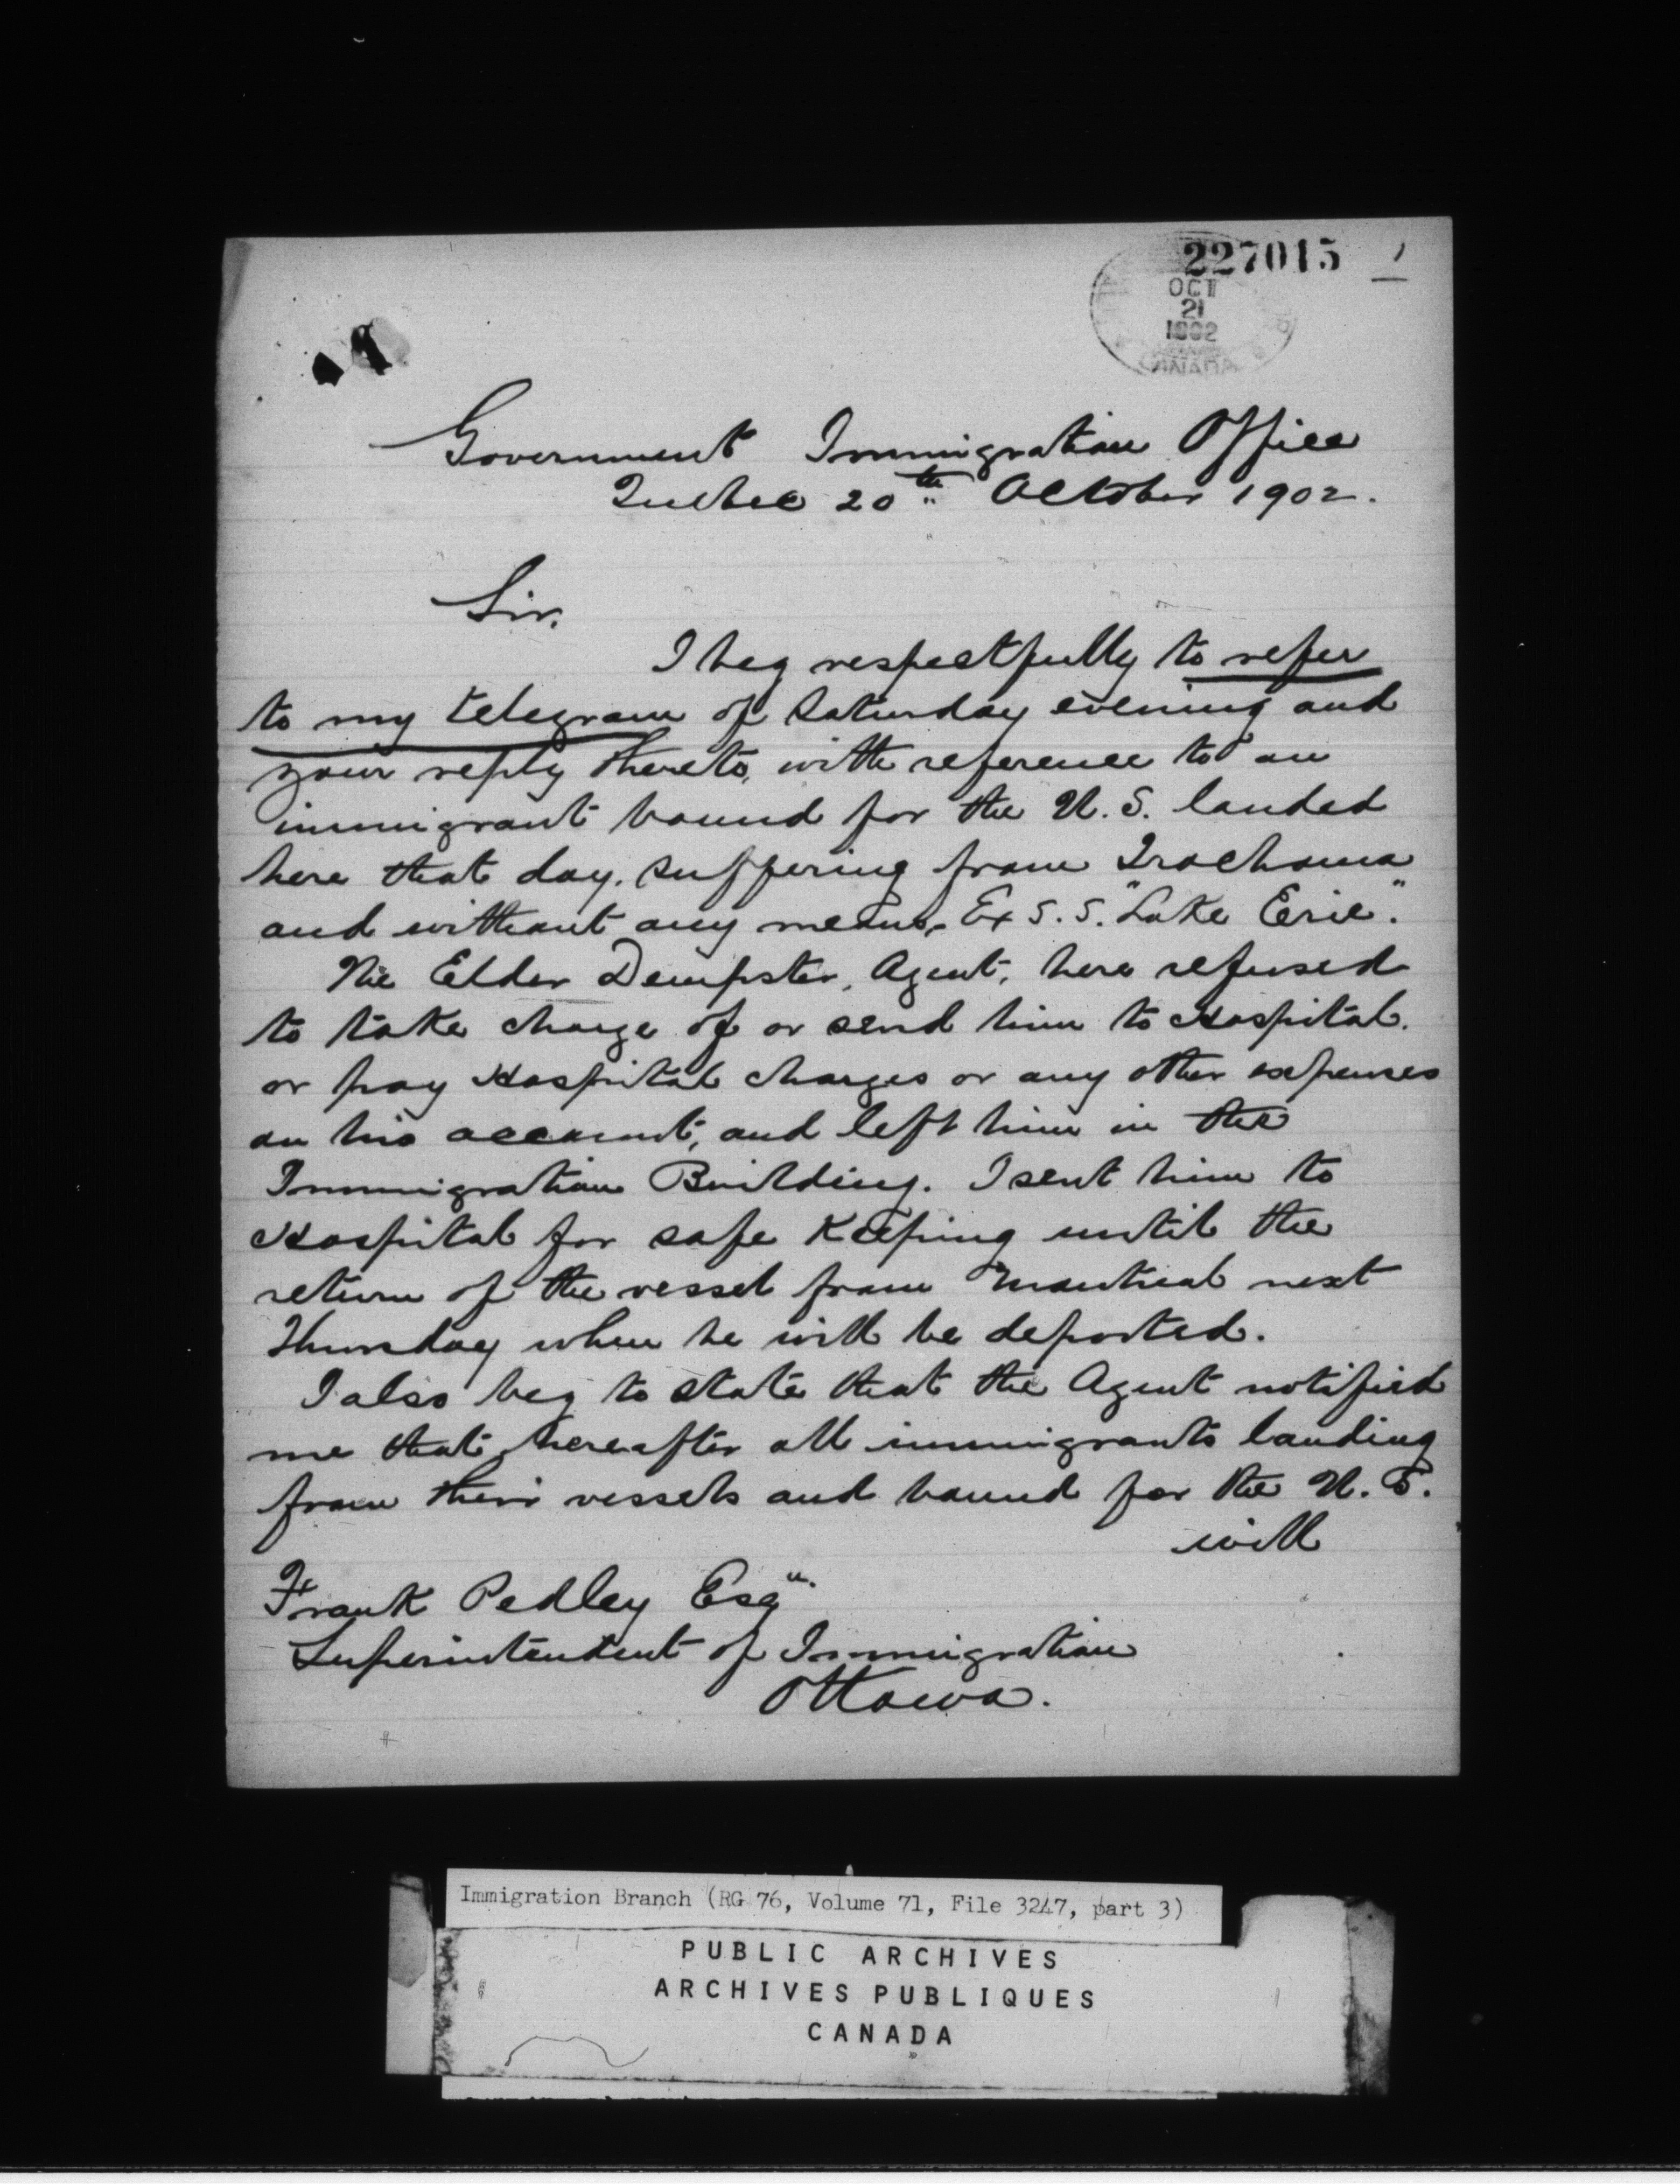 227015
OCT
21
1902
CANADA
Government Immigration Office
Quebec 20th October 1902.
Sir,
I beg respectfully to refer
to my telegram of Saturday evening and
your reply thereto, with reference to an
immigrant bound for the U.S. landed
here that day, suffering from Trachoma
and without any means, Ex S.S. "Lake Erie".
The Elder Dempster, Agent, here refused
to take charge of or send him to Hospital.
or pay Hospital charges or any other expenses
on his account, and left him in the
Immigration Building. I sent him to
Hospital for safe Keeping until the
return of the vessel from Montreal next
Thursday when he will be deported.
I also beg to state that the Agent notified
me that hereafter all immigrants landing
from their vessels and bound for the U.S.
will
Frank Pedley Esqr.
Superintendent of Immigration
Ottawa.
Immigration Branch (RG 76, Volume 71, File 3247, part 3)
PUBLIC ARCHIVES
ARCHIVES PUBLIQUES
CANADA